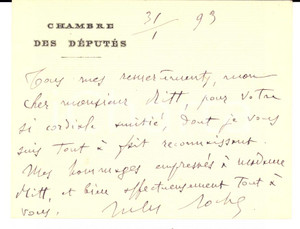 CHAMBRE
DES DÉPUTÉS
31/1 93
Tous mes remerciements, mon
cher monsieur Ritt, pour votre
si cordiale amitié, dont je vous
suis tout à fait reconnaissant.
Mes hommages empressés à madame
Ritt, et bien affectueusement tout à
vous.
Jules Roche